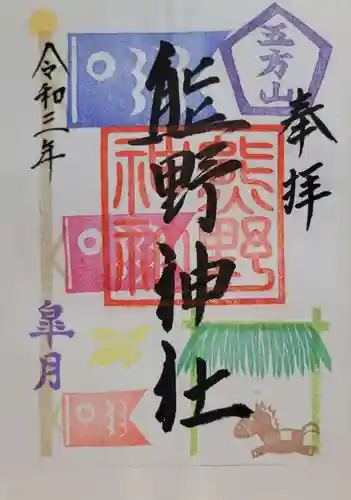 奉拝
五方山
熊野神社
熊野
神社
令和三年
皐月